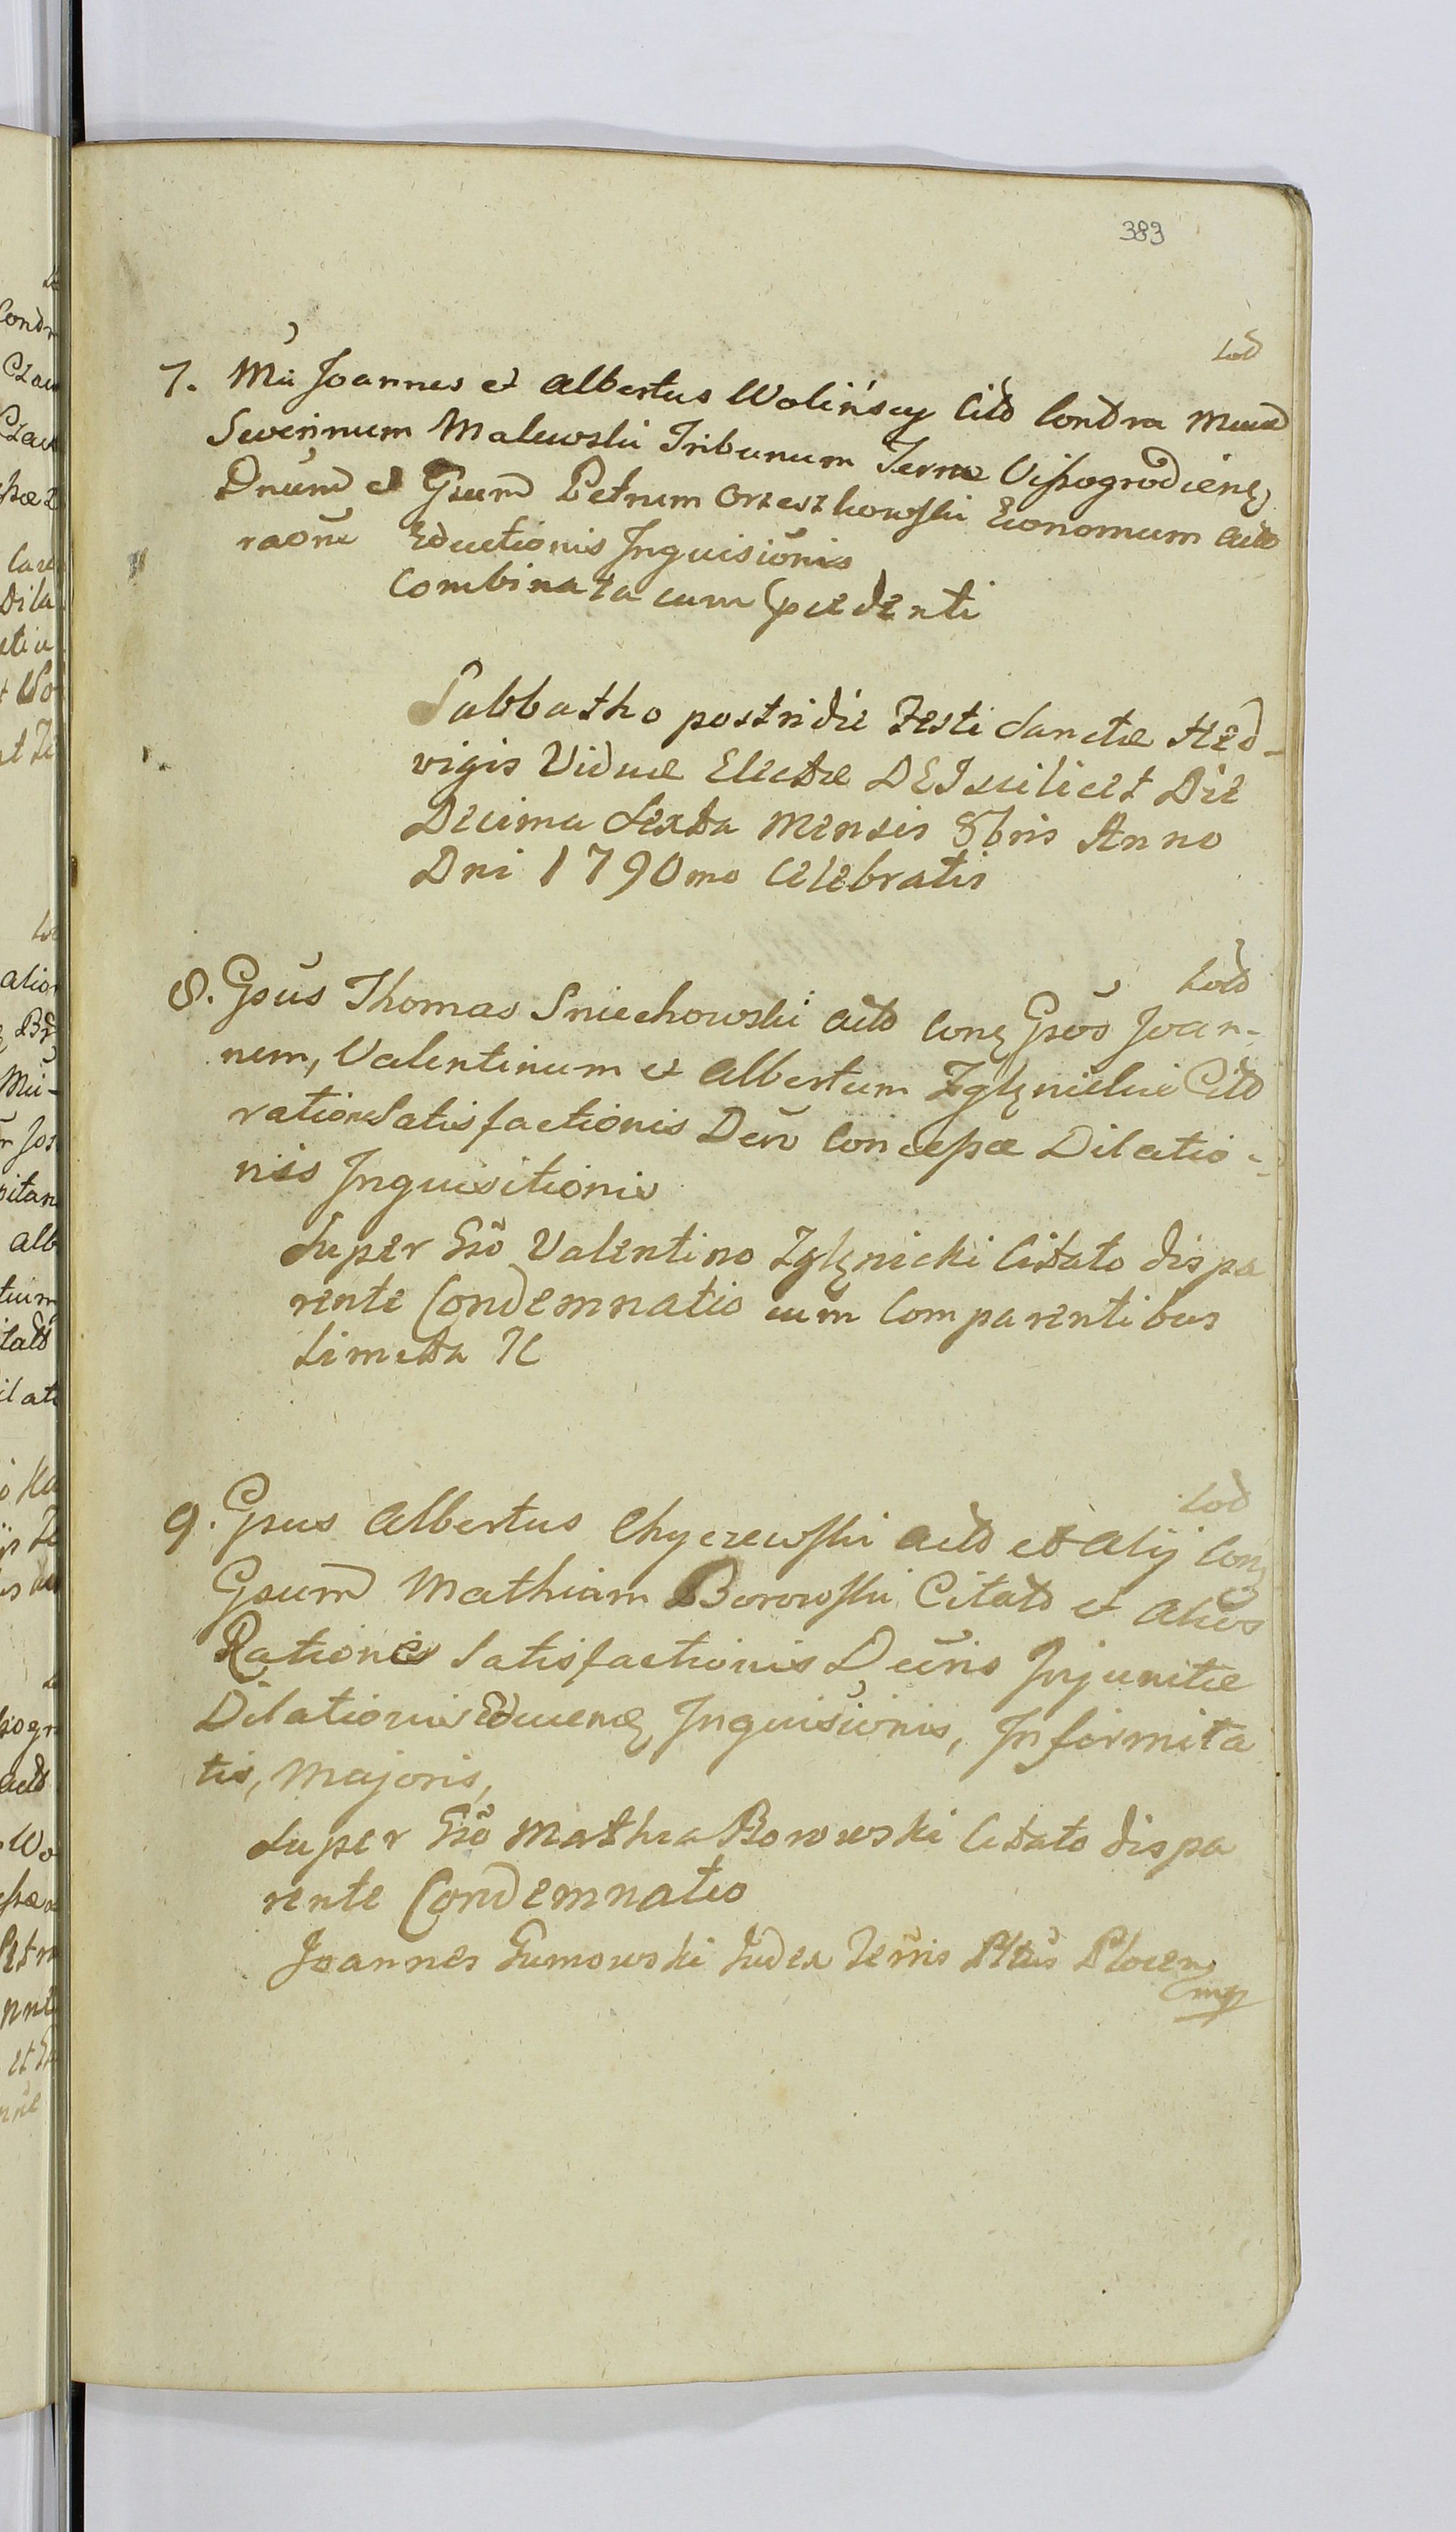 383
Cod
7. Mii Joannes et Albertus Wolińscy Citd Contra Mcum
Severinum Malewski Tribunum Terræ Vissogrodien
Dnum et Gsum Petrum Orzeszkowski Economum Actd
raōne Eductionis Inquisiōnis
Combinata cum Pcedenti
Sabbatho postridie Festi Sanctæ Hed-
vigis Viduæ Electæ DEI scilicet Die
Decima Sexta Mensis 8bris Anno
Dni 1790mo Celebratis
Cod
8. Gsūs Thomas Sniechowski Actd Con Gsōs Joan-
nem, Valentinum et Albertum Zglenickie Citd
ratione Satisfactionis Dēn Concessæ Dilatio-
nis Inquisitionis
Super Gsō Valentino Zglęnicki Citato dispa
rente Condemnatio cum Comparentibus
Simetta
Cod
9. Gsus Albertus Chyczewski Actd et Alij Con
Gsum Mathiam Borowski Citatd et Alios
Rationes Satisfactionis Dēnis Injunctæ
Dilationis Educen Inquisiōnis, Infirmita
tis, Majoris,
Super Gsō Mathia Borowski Citato dispa
rente Condemnatio
Joannes Gumowski Judex Terris Pttus Plocen
mp